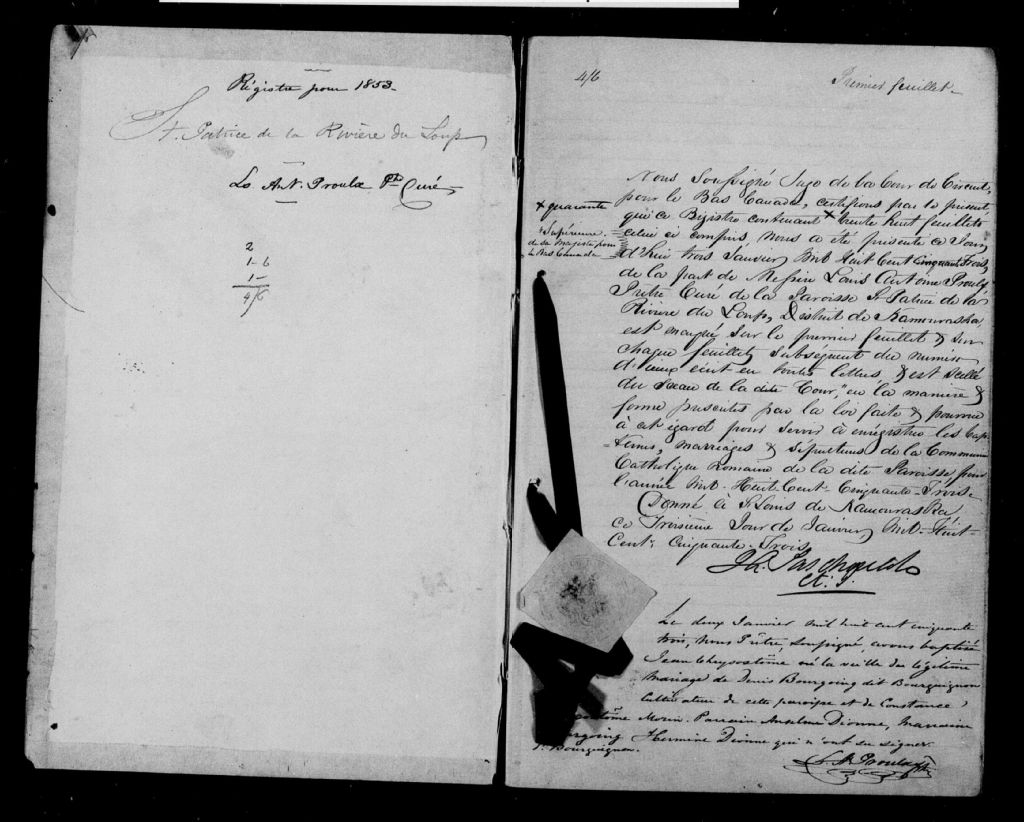 Régistre pour 1853.
St. Patrice de la Rivière du Loup
Ls Ant. Proulx Ptre Curé
2
1-6
1-
4/6
4/6
Premier feuillet.
Nous Soussigné Juge de la Cour de Circuit,
pour le Bas Canada, certifions par le présent,
que ce Régistre contenant + trente huit feuillets
celui ci compris, nous a été présenté ce Jour
d'hui trois Janvier, Mil Huit Cent Cinquante Trois,
de la part de Messire Louis Antoine Proulx
Prêtre Curé de la Paroisse St Patrice de la
Rivière du Loup, District de Kamouraska
est marqué sur le premier feuillet & sur
chaque feuillet subséquent du numéro
écrit en toutes lettres, & est scellé
du Sceau de la dite Cour, en la manière &
forme prescrites par la loi faite & pourvue
à cet égard pour servir à enrégistrer les Bap-
-têmes, marriages & Sépultures de la Commune
Catholique Romaine de la dite Paroisse, pour
l'année Mil-Huit-Cent-Cinquante-Trois.
Donné à St Louis de Kamouraska
ce Troisième Jour de Janvier, Mil-Huit-
Cent, Cinquante-Trois.
+ quarante
Supérieure.
de sa Majesté pour
le Bas Canada
Le deux Janvier mil huit cent cinquante
trois, Nous Prêtre, soussigné, avons baptisé
Jean Chrysostôme né la veille du légitime
mariage de Denis Bourgoing dit Bourguignon
Cultivateur de cette paroisse et de Constance
Morin. Parrain Anselme Dionne, Marraine
Hermine Dionne qui n'ont su signer.
Bourguignon.
L. A. Proulx Ptre